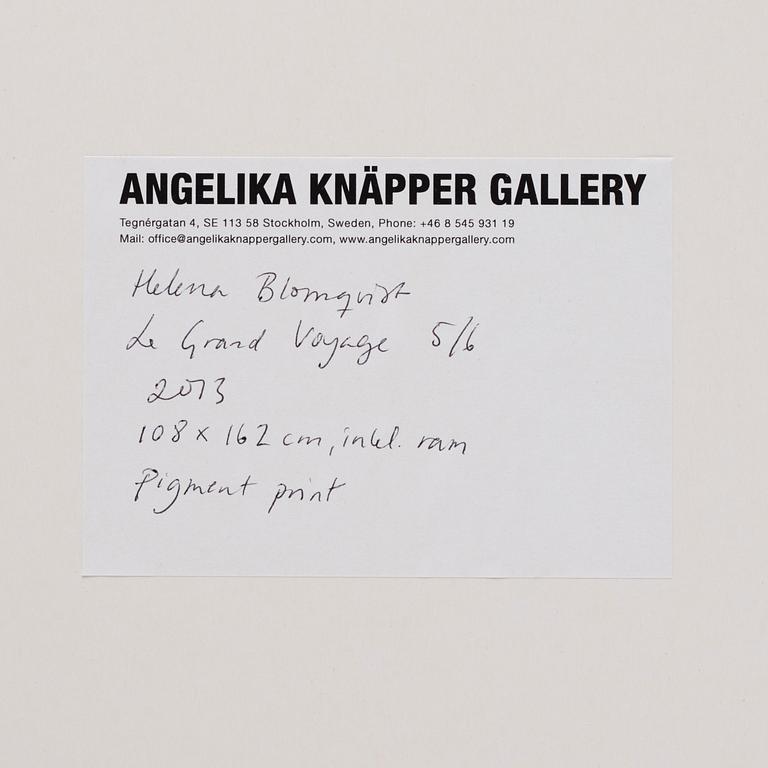 ANGELIKA KNÄPPER GALLERY
Tegnérgatan 4, SE 113 58 Stockholm, Sweden, Phone: +46 8 545 931 19
Mail: office@angelikaknappergallery.com, www.angelikaknappergallery.com
Helena Blomqvist
Le Grand Voyage 5/6
2013
108 x 162 cm, inkl. ram
Pigment print